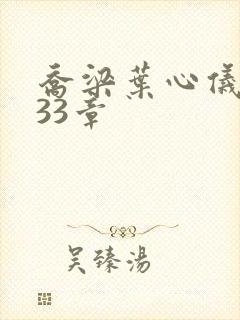 乔梁葉心儀
33章
吴臻湯